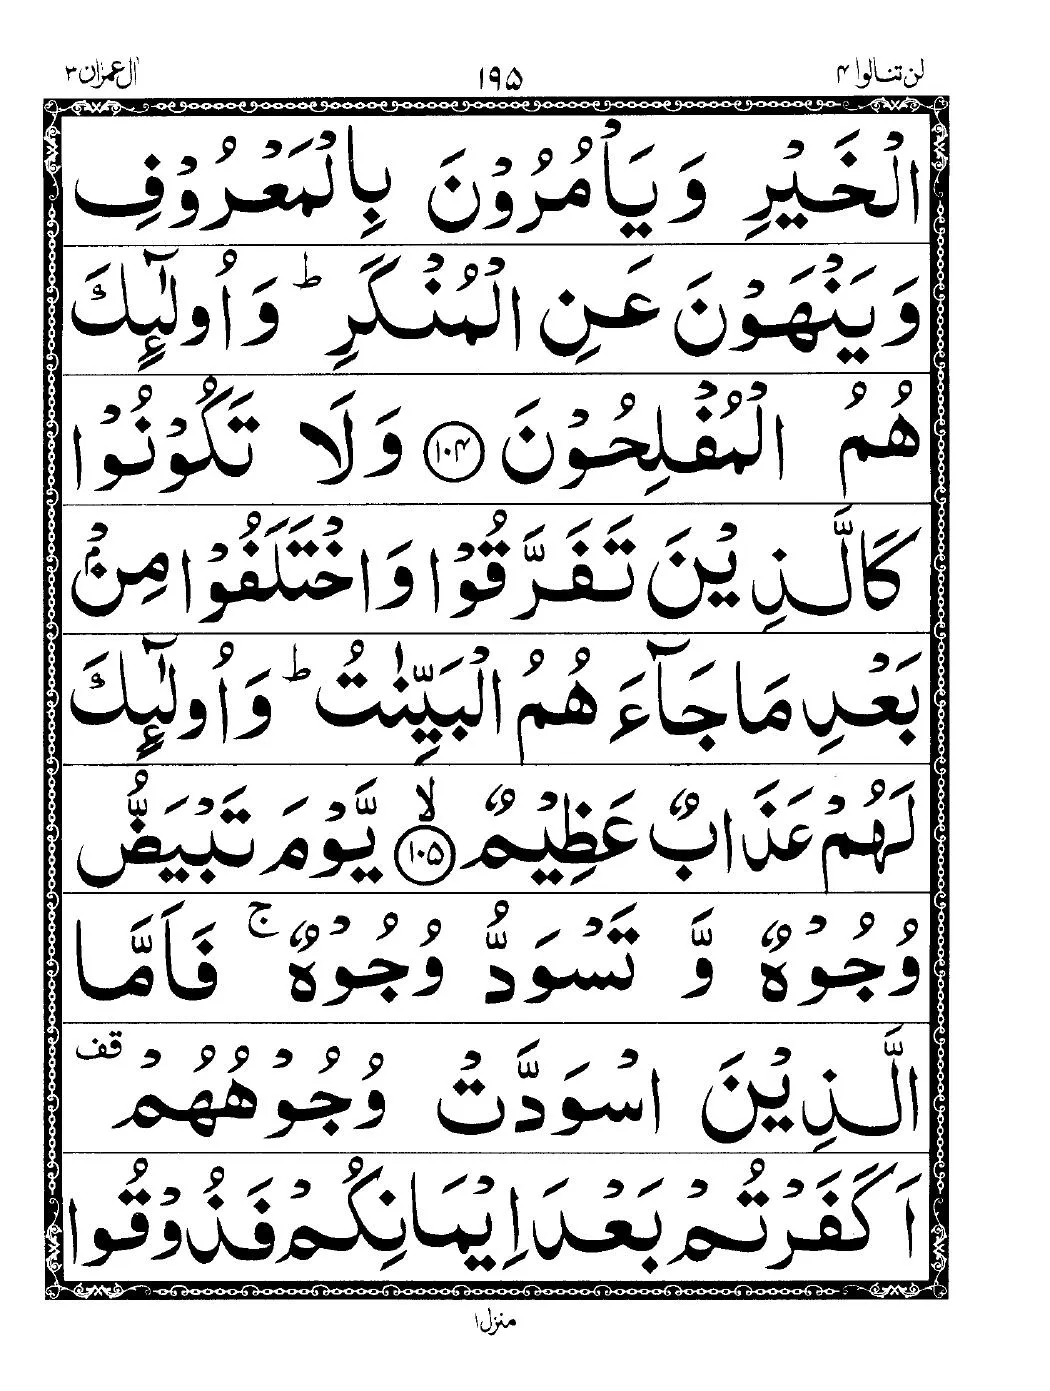 لن تنالوا ۴ ۱۹۵ اٰل عمرٰن ۳
الْخَيْرِ وَيَاْمُرُوْنَ بِالْمَعْرُوْفِ
وَيَنْهَوْنَ عَنِ الْمُنْكَرِ ؕ وَاُولٰٓئِكَ
هُمُ الْمُفْلِحُوْنَ ۱۰۴ وَلَا تَكُوْنُوْا
كَالَّذِيْنَ تَفَرَّقُوْا وَاخْتَلَفُوْا مِنْۢ
بَعْدِ مَا جَآءَ هُمُ الْبَيِّنٰتُ ؕ وَاُولٰٓئِكَ
لَهُمْ عَذَابٌ عَظِيْمٌ ۙ ۱۰۵ يَّوْمَ تَبْيَضُّ
وُجُوْهٌ وَّ تَسْوَدُّ وُجُوْهٌ ۚ فَاَمَّا
الَّذِيْنَ اسْوَدَّتْ وُجُوْهُهُمْ قف
اَكَفَرْتُمْ بَعْدَ اِيْمَانِكُمْ فَذُوْقُوا
منزل ۱